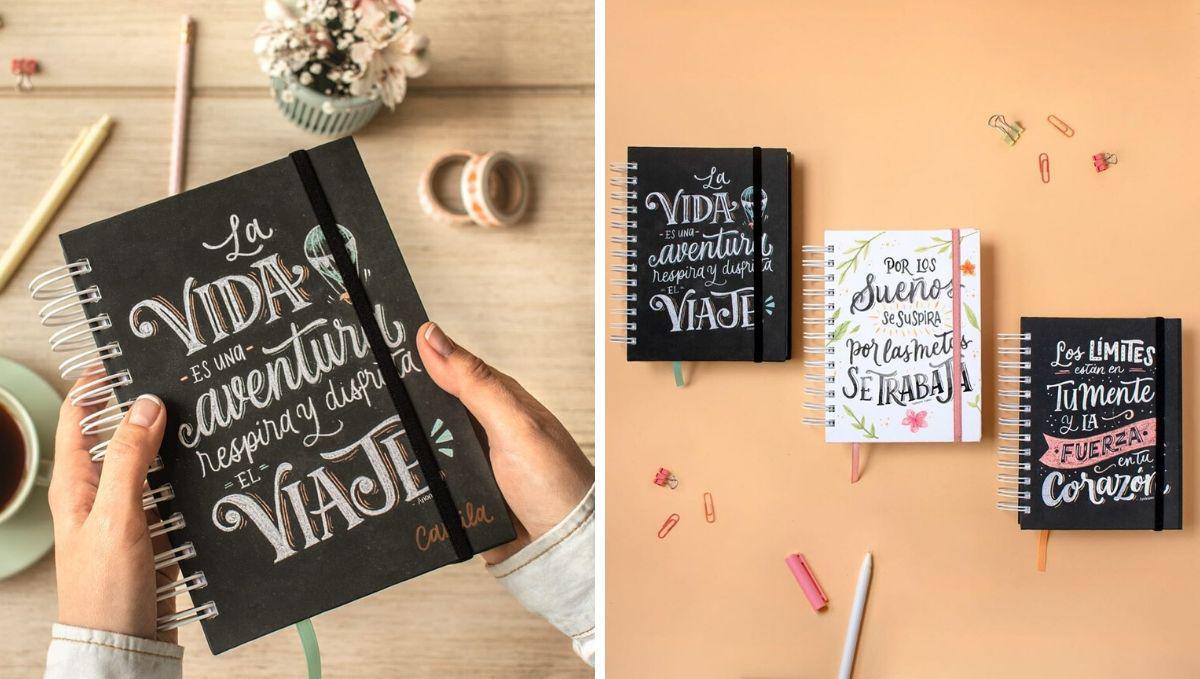 La
VIDA
-ES UNA-
aventura
respira y disfruta
EL
VIAJE
Camila
La
VIDA
-ES UNA-
aventura
respira y disfruta
-EL-
VIAJE
POR LOS
Sueños
se SUSPIRA
por las metas
SE TRABAJA
Los LÍMITES
están en
TU Mente
Y LA
FUERZA
en tu
Corazón